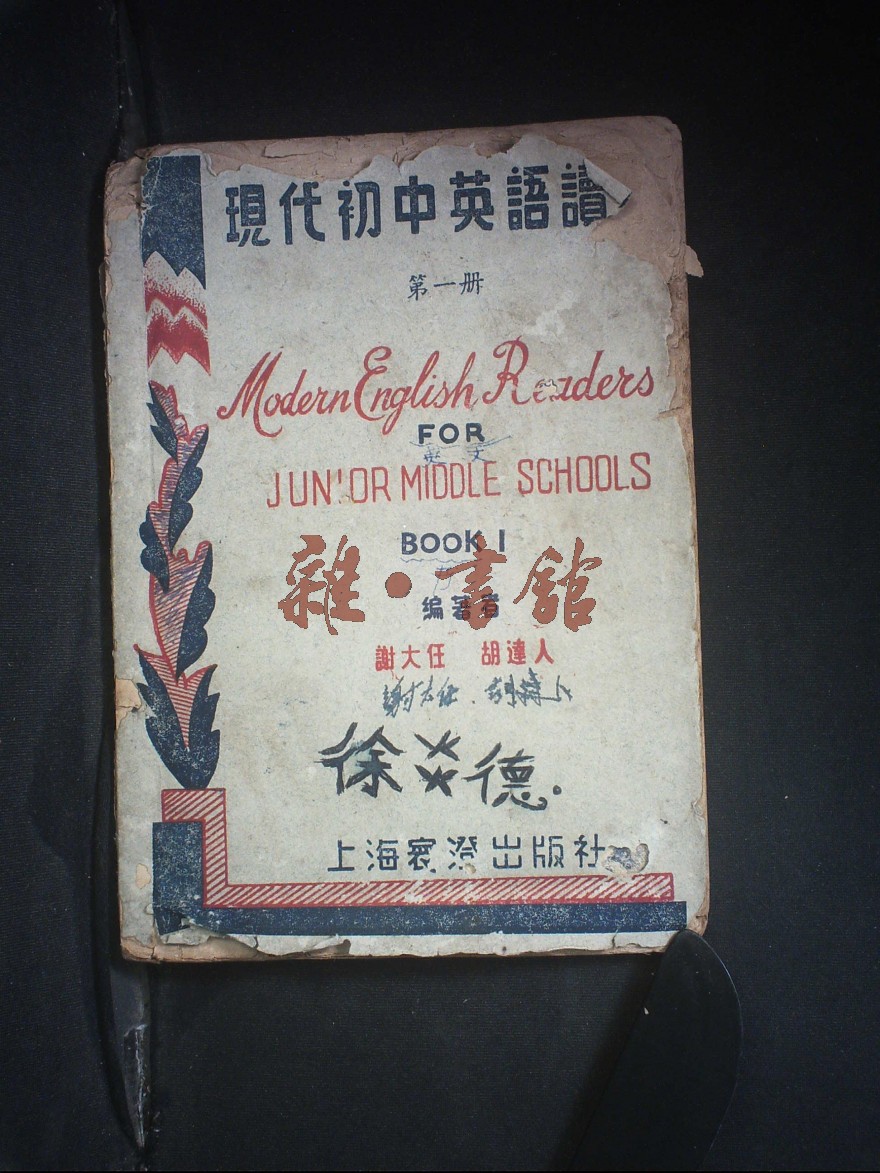 現代初中英語讀
第一册
Modern English Readers
FOR
英文
JUNIOR MIDDLE SCHOOLS
BOOK I
雜·書館
編著者
謝大任 胡達人
謝大任.胡達人
徐炎德.
上海寰澄出版社